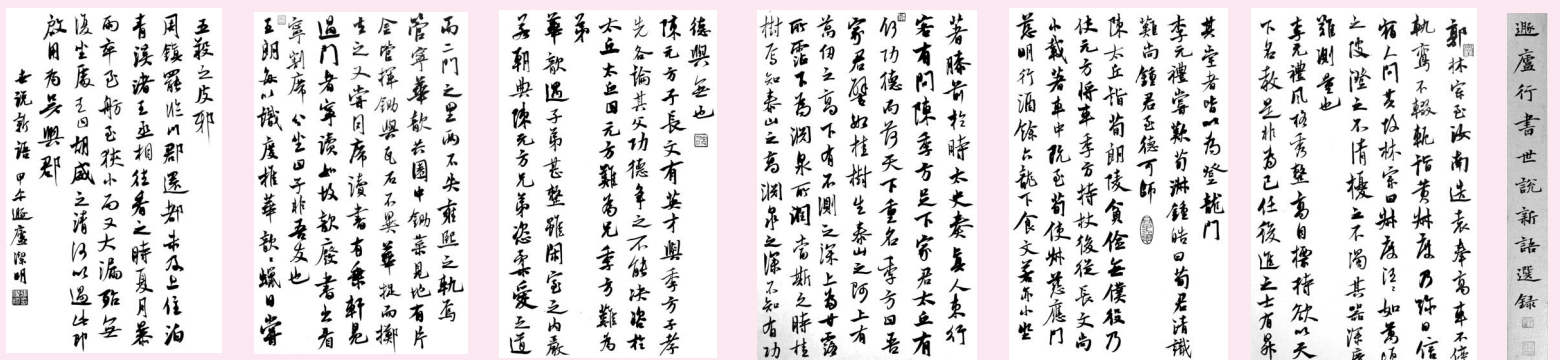 遯廬行書世說新語選錄
郭林宗至汝南造袁奉高車不停
軌鸞不輟軛詣黃叔度乃弥日信
宿人問其故林宗曰叔度汪〻如萬頃
之陂澄之不清擾之不濁其器深廣
難測量也
李元禮風格秀整高自標持欲以天
下名教是非為己任後進之士有昇
其堂者皆以為登龍門
李元禮嘗歎荀淑鍾皓曰荀君清識
難尚鍾君至德可師
陳太丘詣荀朗陵貧儉無僕役乃
使元方將車季方持杖後從長文尚
小載著車中既至荀使叔慈應門
慈明行酒餘六龍下食文若亦小坐
著膝前於時太史奏真人東行
客有問陳季方足下家君太丘有
何功德而荷天下重名季方曰吾
家君譬如桂樹生泰山之阿上有
萬仞之高下有不測之深上為甘露
所霑下為淵泉所潤當斯之時桂
樹焉知泰山之高淵泉之深不知有功
德與無也
陳元方子長文有英才與季方子孝
先各論其父功德爭之不能決咨於
太丘太丘曰元方難為兄季方難為
弟
華歆遇子弟甚整雖閑室之內嚴
若朝典陳元方兄弟恣柔愛之道
而二門之里兩不失雍熙之軌焉
管寧華歆共園中鋤菜見地有片
金管揮鋤與瓦石不異華捉而擲
去之又嘗同席讀書有乘軒冕
過門者寧讀如故歆廢書出看
寧割席分坐曰子非吾友也
王朗每以識度推華歆〻蠟日嘗
五羖之皮邪
周鎮罷臨川郡還都未及上住泊
青溪渚王丞相往看之時夏月暴
雨卒至舫至狹小而又大漏殆無
復坐處王曰胡威之清何以過此即
啟用為吳興郡
世說新語 甲午遯廬潔明